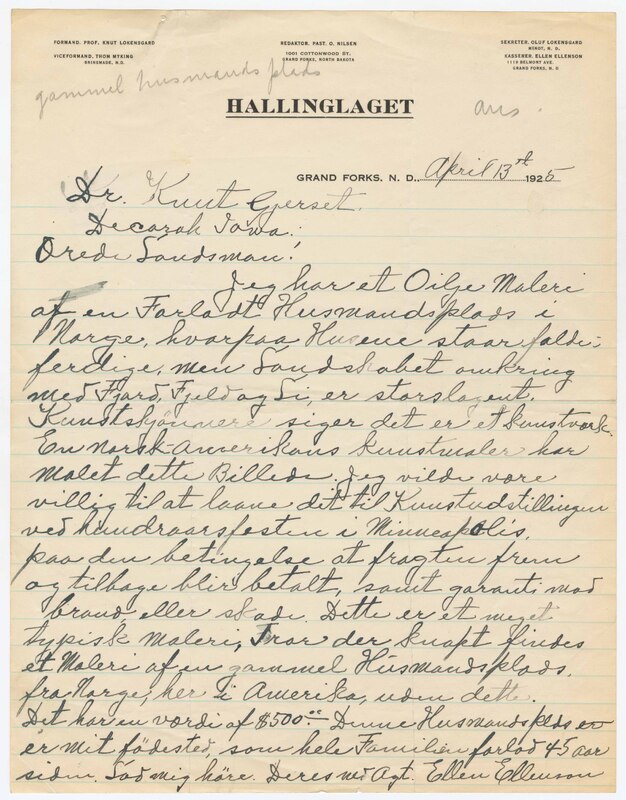 FORMAND. PROF. KNUT LOKENSGARD
VICEFORMAND, THOM MYKING
BRINSMADE, N.D.
REDAKTOR. PAST. O. NILSEN
1001 COTTONWOOD ST.
GRAND FORKS, NORTH DAKOTA
SEKRETER. OLUF LOKENSGARD
MINOT, N. D.
KASSERER. ELLEN ELLENSON
1119 BELMONT AVE.
GRAND FORKS, N. D
gammel husmands plads
HALLINGLAGET
ans.
GRAND FORKS, N. D., April 13 1925
Dr. Knut Gjerset.
Decorah Iowa.
Ærede Landsman!
Jeg har et Oilje Maleri
af en Forladt Husmandsplads i
Norge, hvorpaa Husene staar falde-
ferdige, men Landskabet omkring
med Fjord, Fjeld og Li, er storslagent.
Kunstskjønnere siger det er et kunstværk.
En norsk-Amerikans kunstmaler har
malet dette Billede. Jeg vilde være
villig til at laane det til Kunstudstillingen
ved hundraarsfesten i Minneapolis.
paa den betingelse at fragten frem
og tilbage blir betalt, samt garanti mod
brand eller skade. Dette er et meget
typisk maleri, Tror der knapt findes
et Maleri af en gammel Husmandsplads,
fra Norge, her i Amerika, uden dette.
Det har en værdi af $500.00 Denne Husmandsplds er
er mit födested, som hele Familien forlod 45 aar
siden. Lad mig höre. Deres md Agt. Ellen Ellenson